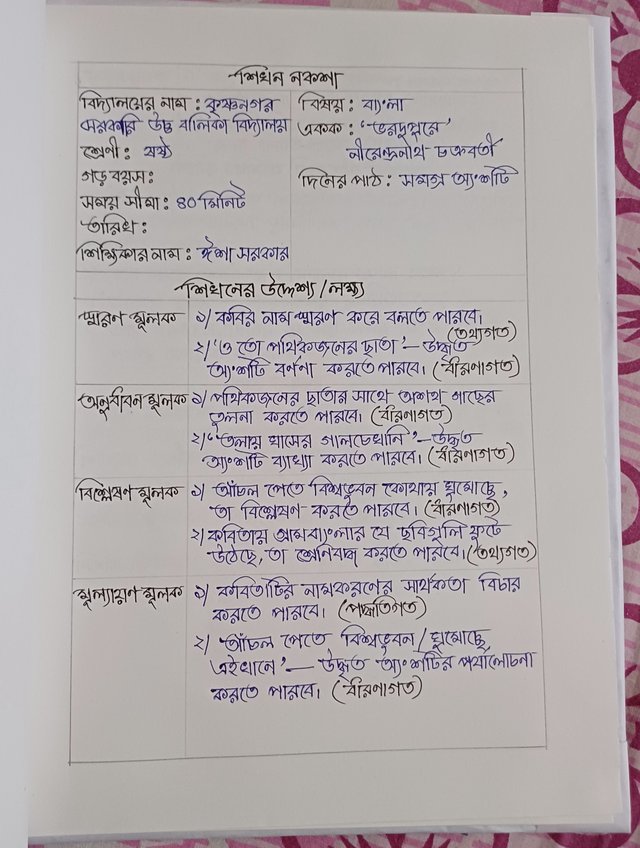 শিখন নকশা
বিদ্যালয়ের নাম : কৃষ্ণনগর
সরকারি উচ্চ বালিকা বিদ্যালয়
শ্রেণী : ষষ্ঠ
গড় বয়স :
সময় সীমা : ৪০ মিনিট
তারিখ :
শিক্ষিকার নাম : ঈশা সরকার
বিষয় : বাংলা
একক : 'ভরদুপুরে'
নীরেন্দ্রনাথ চক্রবর্তী
দিনের পাঠ : সমগ্র অংশটি
শিখনের উদ্দেশ্য / লক্ষ্য
স্মরণ মূলক
১/ কবির নাম স্মরণ করে বলতে পারবে।
(তথ্যগত)
২/ 'ও তো পথিকজনের ছাতা' — উদ্ধৃত
অংশটি বর্ণনা করতে পারবে। (ধারণাগত)
অনুধাবন মূলক
১/ পথিকজনের ছাতার সাথে অশথ গাছের
তুলনা করতে পারবে। (ধারণাগত)
২/ 'তলায় ঘাসের গালচেখানি' — উদ্ধৃত
অংশটি ব্যাখ্যা করতে পারবে। (ধারণাগত)
বিশ্লেষণ মূলক
১/ আঁচল পেতে বিশ্বভুবন কোথায় ঘুমোচ্ছে,
তা বিশ্লেষণ করতে পারবে। (ধারণাগত)
২/ কবিতায় গ্রামবাংলার যে ছবিগুলি ফুটে
উঠেছে, তা শ্রেণিবদ্ধ করতে পারবে। (তথ্যগত)
মূল্যায়ণ মূলক
১/ কবিতাটির নামকরণের সার্থকতা বিচার
করতে পারবে। (পদ্ধতিগত)
২/ আঁচল পেতে বিশ্বভুবন / ঘুমোচ্ছে
এইখানে' — উদ্ধৃত অংশটির পর্যালোচনা
করতে পারবে। (ধারণাগত)